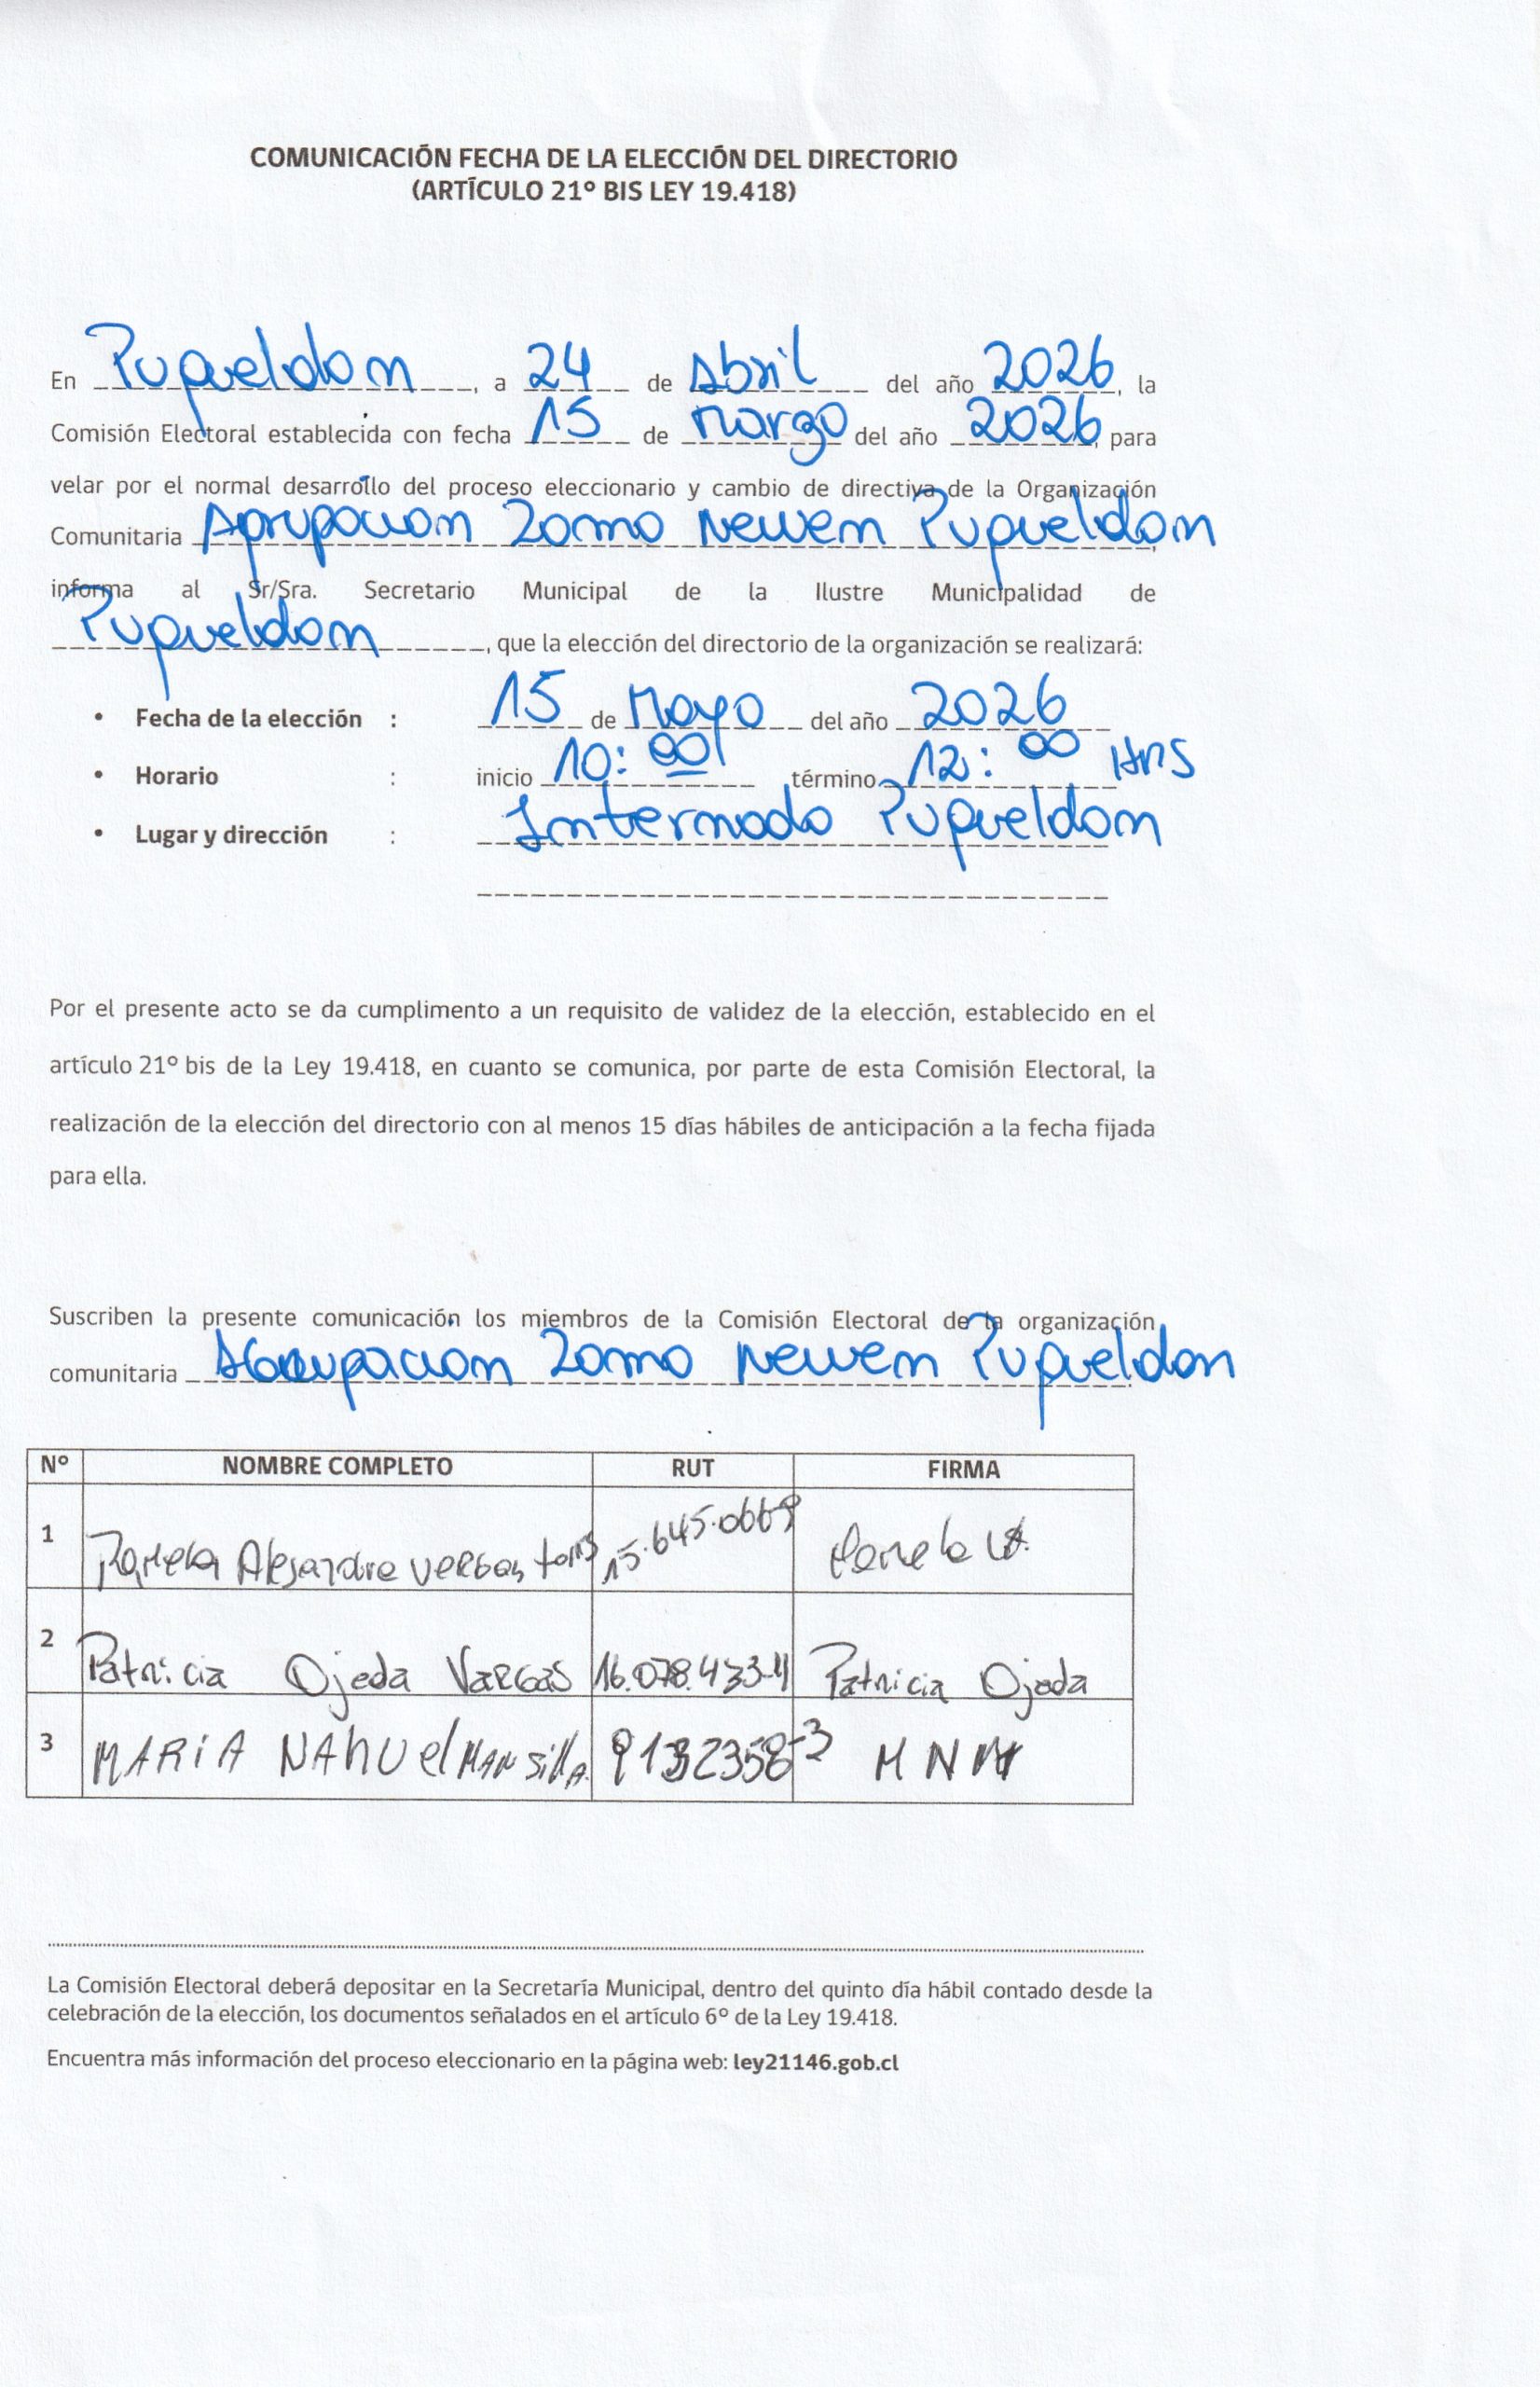 COMUNICACIÓN FECHA DE LA ELECCIÓN DEL DIRECTORIO
(ARTÍCULO 21º BIS LEY 19.418)
En Puqueldon, a 24 de Abril del año 2026, la
Comisión Electoral establecida con fecha 15 de Marzo del año 2026, para
velar por el normal desarrollo del proceso eleccionario y cambio de directiva de la Organización
Comunitaria Agrupacion Zomo Newen Puqueldon,
informa al Sr/Sra. Secretario Municipal de la Ilustre Municipalidad de
Puqueldon, que la elección del directorio de la organización se realizará:
• Fecha de la elección : 15 de Mayo del año 2026
• Horario : inicio 10:00 término 12:00 Hrs
• Lugar y dirección : Internado Puqueldon
Por el presente acto se da cumplimento a un requisito de validez de la elección, establecido en el
artículo 21º bis de la Ley 19.418, en cuanto se comunica, por parte de esta Comisión Electoral, la
realización de la elección del directorio con al menos 15 días hábiles de anticipación a la fecha fijada
para ella.
Suscriben la presente comunicación los miembros de la Comisión Electoral de la organización
comunitaria Agrupacion Zomo Newen Puqueldon
Nº NOMBRE COMPLETO RUT FIRMA
1 Pamela Alejandra Vergas 15.645.066-9 Pamela
2 Patricia Ojeda Vargas 16.078.433-4 Patricia Ojeda
3 MARIA NAhUel MANSillA 9132358-3 MNM
La Comisión Electoral deberá depositar en la Secretaría Municipal, dentro del quinto día hábil contado desde la
celebración de la elección, los documentos señalados en el artículo 6º de la Ley 19.418.
Encuentra más información del proceso eleccionario en la página web: ley21146.gob.cl